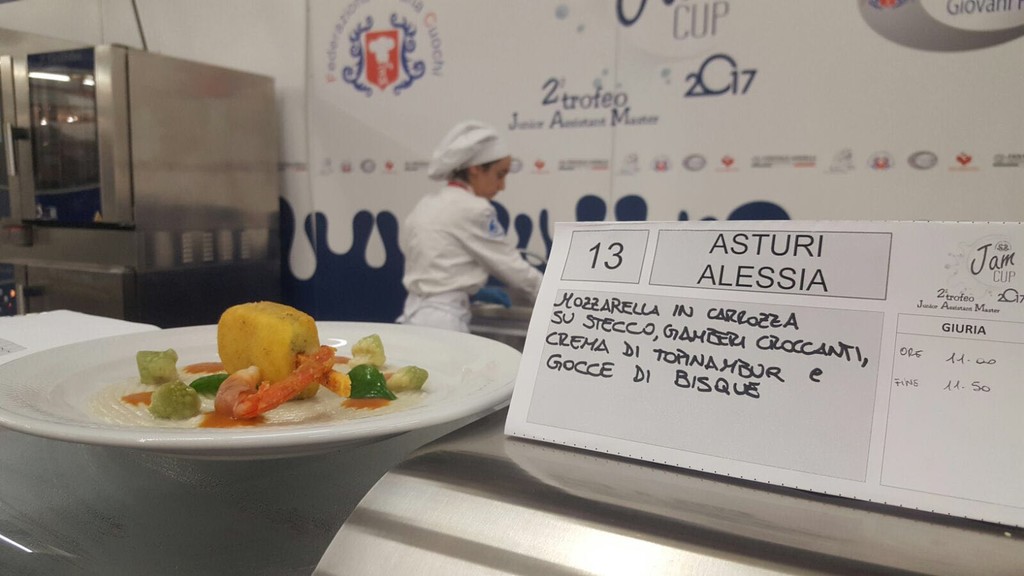 Federazione Italiana Cuochi
Jam
CUP
2017
2° trofeo
Junior Assistant Master
Giovani
13
ASTURI
ALESSIA
MOZZARELLA IN CARROZZA
SU STECCO, GAMBERI CROCCANTI,
CREMA DI TOPINAMBUR e
GOCCE DI BISQUE
Jam
CUP
2° trofeo 2017
Junior Assistant Master
GIURIA
ORE 11.00
FINE 11.50